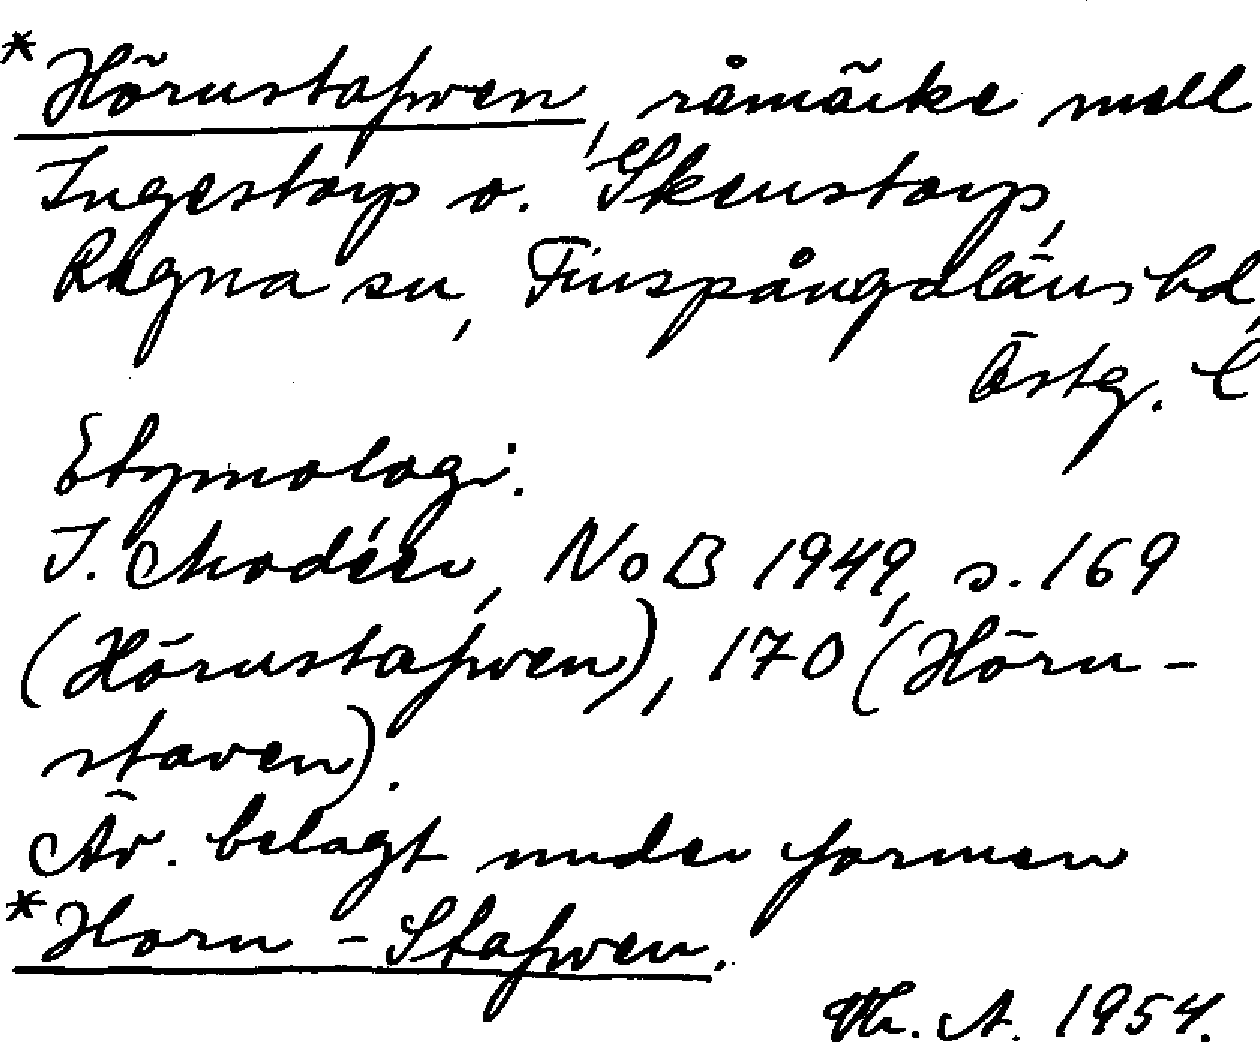 *Hörnstafwen, råmärke mell
Ingestorp o. Skenstorp,
Regna sn, Finspångaläns hd,
Östg. l
Etymologi:
I. Modéer, NoB 1949, s. 169
(Hörnstafwen), 170 (Hörn-
staven).
Äv. belagt under formen
*Horn-Stafwen.
Th. A. 1954.